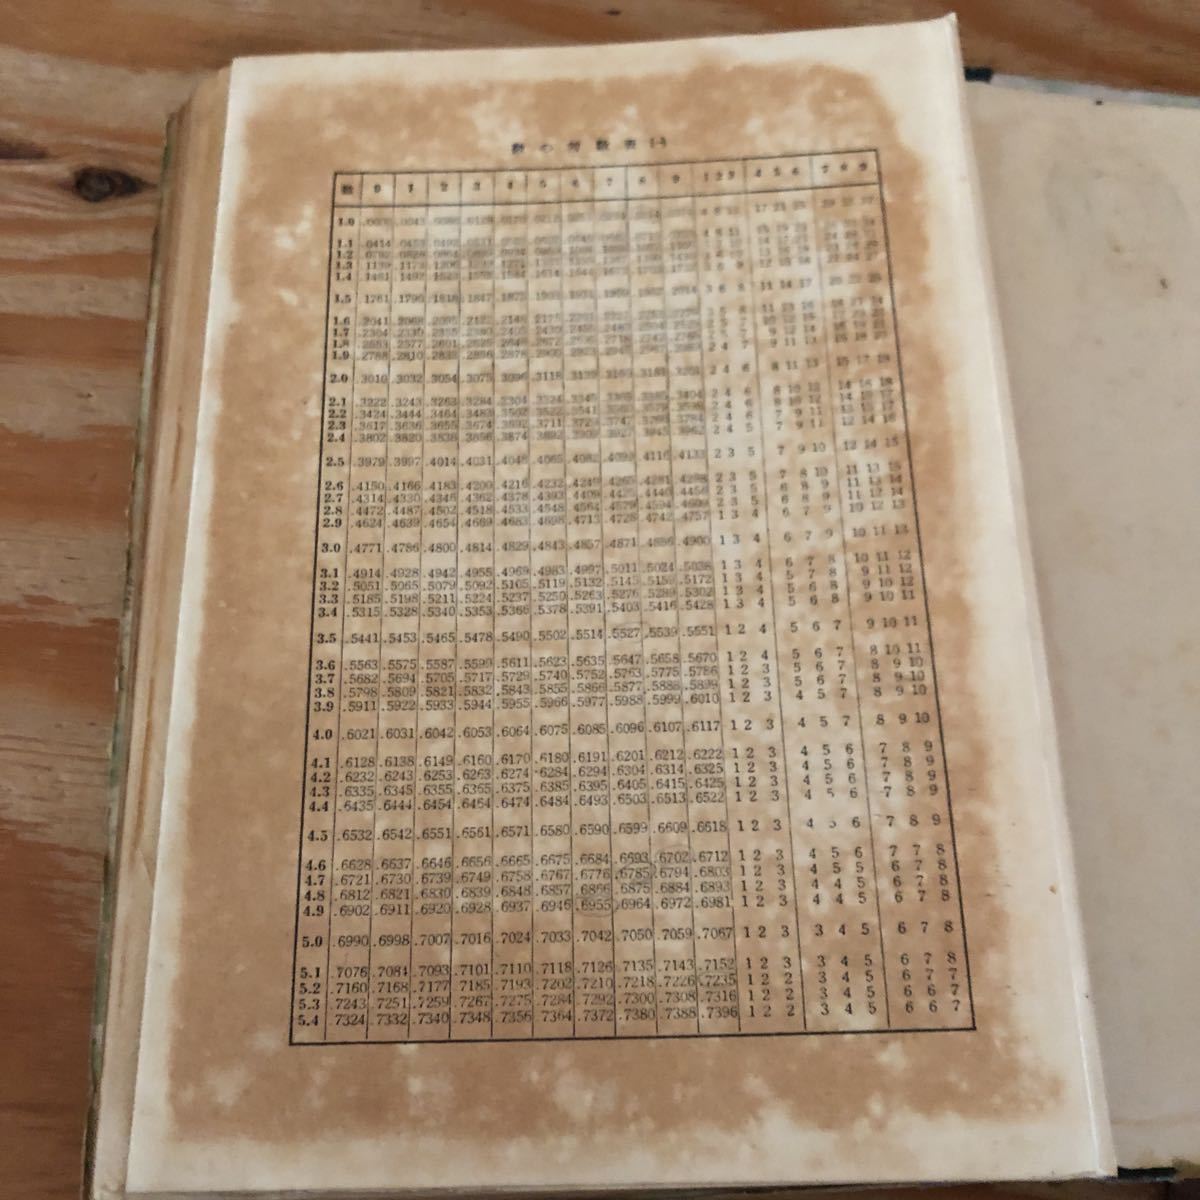 数の対数表
数 0 1 2 3 4 5 6 7 8 9 1 2 3 4 5 6 7 8 9
1.0 .0043
1.1 .0414 .0453 .0492 .0531
1.2 .0792 .0828 .0864
1.3 .1139 .1173 .1206
1.4 .1461 .1492 .1523 .1553 .1584 .1614 .1644
1.5 .1761 .1790 .1818 .1847 .1875 .1903 .1931 .1959 .1987 .2014 3 6 8 11 14 17 20 22 25
1.6 .2041 .2068 .2095 .2122 .2148 .2175
1.7 .2304 .2330 .2355 .2380 .2405 .2430 .2455 .2480
1.8 .2553 .2577 .2601 .2625 .2648 .2672 .2695 .2718 .2742
1.9 .2788 .2810 .2833 .2856 .2878 .2900 2 4 7 9 11 13
2.0 .3010 .3032 .3054 .3075 .3096 .3118 .3139 .3160 .3181 .3201 2 4 6 8 11 13 15 17 19
2.1 .3222 .3243 .3263 .3284 .3304 .3324 .3345 .3365 .3385 .3404 2 4 6 8 10 12 14 16 18
2.2 .3424 .3444 .3464 .3483 .3502 .3522 .3541 .3560 .3579 .3598 2 4 6 8 10 12 14 15 17
2.3 .3617 .3636 .3655 .3674 .3692 .3711 .3729 .3747 .3766 .3784 2 4 6 7 9 11 13 15 17
2.4 .3802 .3820 .3838 .3856 .3874 .3892 .3909 .3927 .3945 .3962 2 4 5 7 9 11 12 14 16
2.5 .3979 .3997 .4014 .4031 .4048 .4065 .4082 .4099 .4116 .4133 2 3 5 7 9 10 12 14 15
2.6 .4150 .4166 .4183 .4200 .4216 .4232 .4249 .4265 .4281 .4298 2 3 5 7 8 10 11 13 15
2.7 .4314 .4330 .4346 .4362 .4378 .4393 .4409 .4425 .4440 .4456 2 3 5 6 8 9 11 13 14
2.8 .4472 .4487 .4502 .4518 .4533 .4548 .4564 .4579 .4594 .4609 2 3 5 6 8 9 11 12 14
2.9 .4624 .4639 .4654 .4669 .4683 .4698 .4713 .4728 .4742 .4757 1 3 4 6 7 9 10 12 13
3.0 .4771 .4786 .4800 .4814 .4829 .4843 .4857 .4871 .4886 .4900 1 3 4 6 7 9 10 11 13
3.1 .4914 .4928 .4942 .4955 .4969 .4983 .4997 .5011 .5024 .5038 1 3 4 6 7 8 10 11 12
3.2 .5051 .5065 .5079 .5092 .5105 .5119 .5132 .5145 .5159 .5172 1 3 4 5 7 8 9 11 12
3.3 .5185 .5198 .5211 .5224 .5237 .5250 .5263 .5276 .5289 .5302 1 3 4 5 6 8 9 10 12
3.4 .5315 .5328 .5340 .5353 .5366 .5378 .5391 .5403 .5416 .5428 1 3 4 5 6 8 9 10 11
3.5 .5441 .5453 .5465 .5478 .5490 .5502 .5514 .5527 .5539 .5551 1 2 4 5 6 7 9 10 11
3.6 .5563 .5575 .5587 .5599 .5611 .5623 .5635 .5647 .5658 .5670 1 2 4 5 6 7 8 10 11
3.7 .5682 .5694 .5705 .5717 .5729 .5740 .5752 .5763 .5775 .5786 1 2 3 5 6 7 8 9 10
3.8 .5798 .5809 .5821 .5832 .5843 .5855 .5866 .5877 .5888 .5899 1 2 3 5 6 7 8 9 10
3.9 .5911 .5922 .5933 .5944 .5955 .5966 .5977 .5988 .5999 .6010 1 2 3 4 5 7 8 9 10
4.0 .6021 .6031 .6042 .6053 .6064 .6075 .6085 .6096 .6107 .6117 1 2 3 4 5 7 8 9 10
4.1 .6128 .6138 .6149 .6160 .6170 .6180 .6191 .6201 .6212 .6222 1 2 3 4 5 6 7 8 9
4.2 .6232 .6243 .6253 .6263 .6274 .6284 .6294 .6304 .6314 .6325 1 2 3 4 5 6 7 8 9
4.3 .6335 .6345 .6355 .6365 .6375 .6385 .6395 .6405 .6415 .6425 1 2 3 4 5 6 7 8 9
4.4 .6435 .6444 .6454 .6464 .6474 .6484 .6493 .6503 .6513 .6522 1 2 3 4 5 6 7 8 9
4.5 .6532 .6542 .6551 .6561 .6571 .6580 .6590 .6599 .6609 .6618 1 2 3 4 5 6 7 8 9
4.6 .6628 .6637 .6646 .6656 .6665 .6675 .6684 .6693 .6702 .6712 1 2 3 4 5 6 7 7 8
4.7 .6721 .6730 .6739 .6749 .6758 .6767 .6776 .6785 .6794 .6803 1 2 3 4 5 5 6 7 8
4.8 .6812 .6821 .6830 .6839 .6848 .6857 .6866 .6875 .6884 .6893 1 2 3 4 4 5 6 7 8
4.9 .6902 .6911 .6920 .6928 .6937 .6946 .6955 .6964 .6972 .6981 1 2 3 4 4 5 6 7 8
5.0 .6990 .6998 .7007 .7016 .7024 .7033 .7042 .7050 .7059 .7067 1 2 3 3 4 5 6 7 8
5.1 .7076 .7084 .7093 .7101 .7110 .7118 .7126 .7135 .7143 .7152 1 2 3 3 4 5 6 7 8
5.2 .7160 .7168 .7177 .7185 .7193 .7202 .7210 .7218 .7226 .7235 1 2 2 3 4 5 6 7 7
5.3 .7243 .7251 .7259 .7267 .7275 .7284 .7292 .7300 .7308 .7316 1 2 2 3 4 5 6 6 7
5.4 .7324 .7332 .7340 .7348 .7356 .7364 .7372 .7380 .7388 .7396 1 2 2 3 4 5 6 6 7